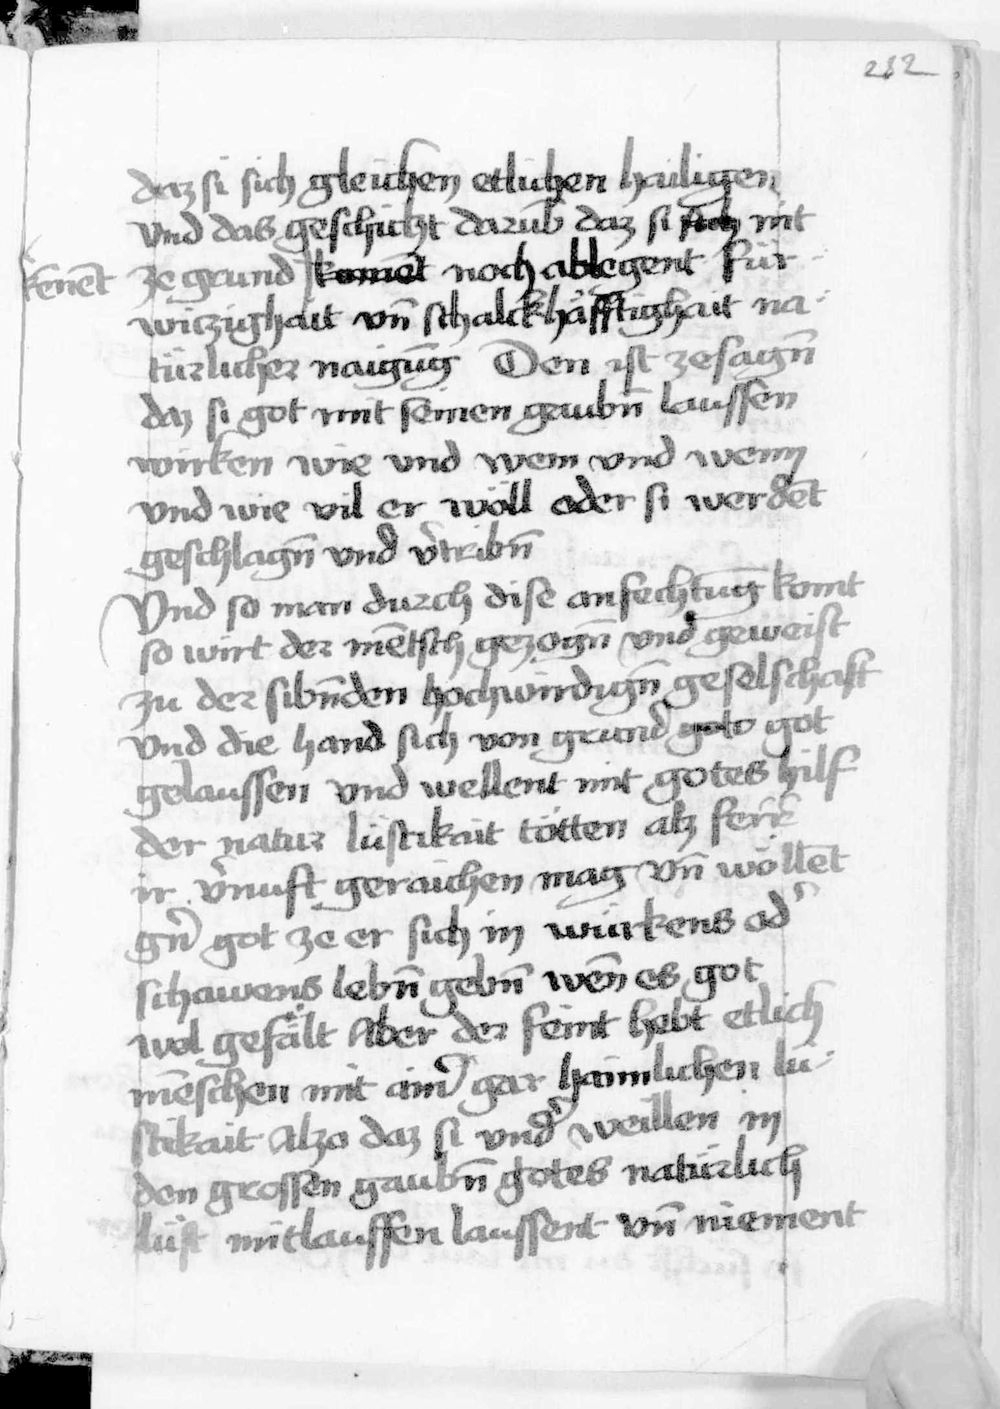 232
daz si sich gleichen etlichen hailigen
vnd das geschicht darūb daz si sich nit
kenēt ze grund komēt noch ablegent für
witzighait vn̄ schalckhäfftighait na-
türlicher naigūg Den ist zesagn̄
daz si got mit seinen gaubn̄ laussen
wirken wie vnd wem vnd wenn
vnd wie vil er wöll oder si werdēt
geschlagn̄ vnd v̾tribn̄
Vnd so man durch dise anfechtūg komt
so wirt der mētsch gezogn̄ vnd geweist
zu der sibn̄den hochwirdign̄ geselschaft
vnd die hand sich von grund goto got
gelaussen vnd wellent mit gotes hilf
der natur lüstikait tötten alz ferr
ir v̾nuft geraichen mag vn̄ wöllēt
gn̄ got ze er sich in würkens od̾
schawens lebn̄ gebn̄ wēn es got
wol gefält Aber der feint hebt etlich
mēschen mit aim̾ gar haimlichen lü-
stikait Alzo daz si vnd̾ weillen in
den grossen gaubn̄ gotes natürlich
lüst mitlauffen laussent vn̄ niement